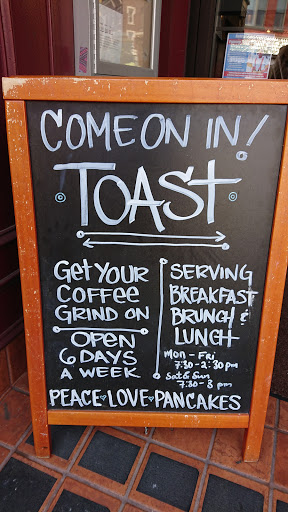 COME ON IN!
TOAST
GET YOUR
COFFEE
GRIND ON
OPEN
6 DAYS
A WEEK
SERVING
BREAKFAST
BRUNCH &
LUNCH
MON - FRI
7:30-2:30pm
Sat & Sun
7:30-3pm
PEACE LOVE PANCAKES